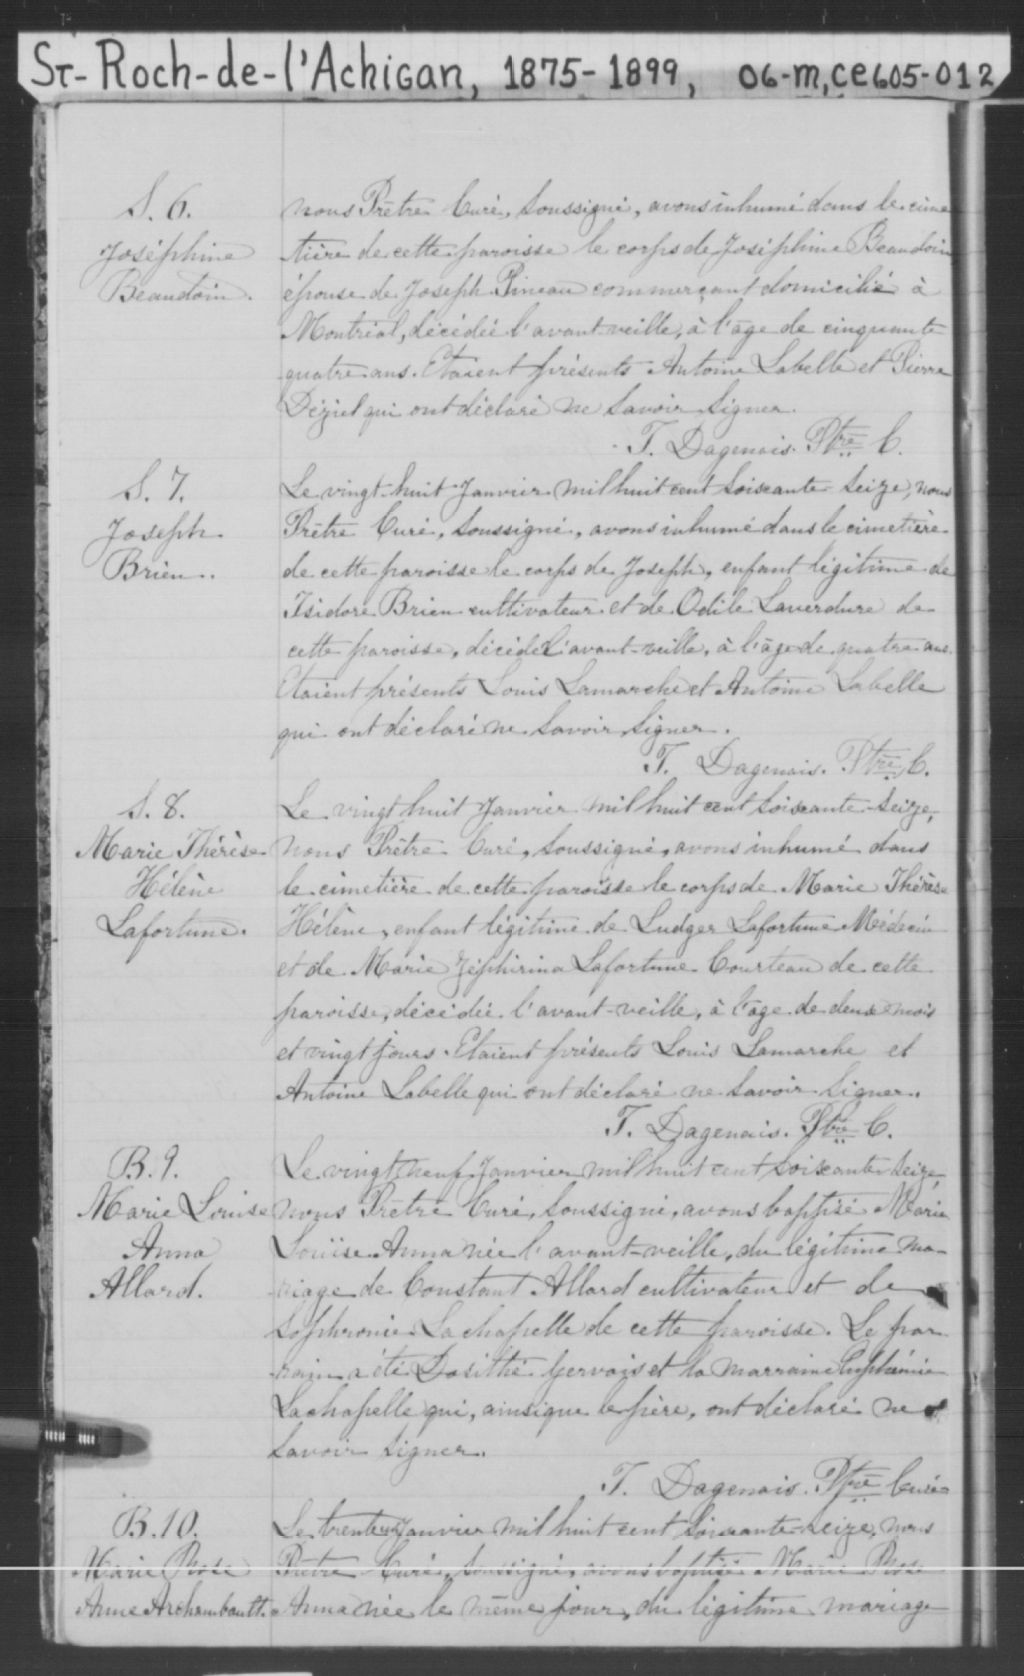 St-Roch-de-l'Achigan, 1875-1899, 06-M,CE605-012
S. 6.
Joséphine
Beaudoin.
nous Prêtre Curé, soussigné, avons inhumé dans le cime
tière de cette paroisse le corps de Joséphine Beaudoin
épouse de Joseph Pineau commerçant domicilié à
Montréal, décédée l'avant-veille, à l'âge de cinquante
quatre ans. Etaient présents Antoine Labelle et Pierre
Déziel qui ont déclaré ne savoir signer.
T. Dagenais. Ptre C.
S. 7.
Joseph
Brien.
Le vingt-huit Janvier mil huit cent soixante-seize, nous
Prêtre Curé, soussigné, avons inhumé dans le cimetière
de cette paroisse le corps de Joseph, enfant légitime de
Isidore Brien cultivateur et de Odile Laverdure de
cette paroisse, décédé l'avant-veille, à l'âge de quatre ans.
Etaient présents Louis Lamarche et Antoine Labelle
qui ont déclaré ne savoir signer.
T. Dagenais. Ptre C.
S. 8.
Marie Thérèse
Hélène
Lafortune.
Le vingt huit Janvier mil huit cent soixante-seize,
nous Prêtre Curé, soussigné, avons inhumé dans
le cimetière de cette paroisse le corps de Marie Thérèse
Hélène, enfant légitime de Ludger Lafortune Médecin
et de Marie Zéphirina Lafortune Courteau de cette
paroisse, décédée l'avant-veille, à l'âge de deux mois
et vingt jours. Etaient présents Louis Lamarche et
Antoine Labelle qui ont déclaré ne savoir signer.
T. Dagenais. Ptre C.
B. 9.
Marie Louise
Anna
Allard.
Le vingt neuf Janvier mil huit cent soixante-seize,
nous Prêtre Curé, soussigné, avons baptisé Marie
Louise Anna née l'avant-veille, du légitime ma-
riage de Constant Allard cultivateur et de
Sophronie Lachapelle de cette paroisse. Le par
rain a été Dosithé Gervais et la marraine Euphémie
Lachapelle qui, ainsi que le père, ont déclaré ne
savoir signer.
T. Dagenais. Ptre Curé
B. 10.
Marie Rose
Anne Archambault.
Le trente Janvier mil huit cent soixante-seize, nous
Prêtre Curé, soussigné, avons baptisé Marie Rose
Anna née le même jour, du légitime mariage